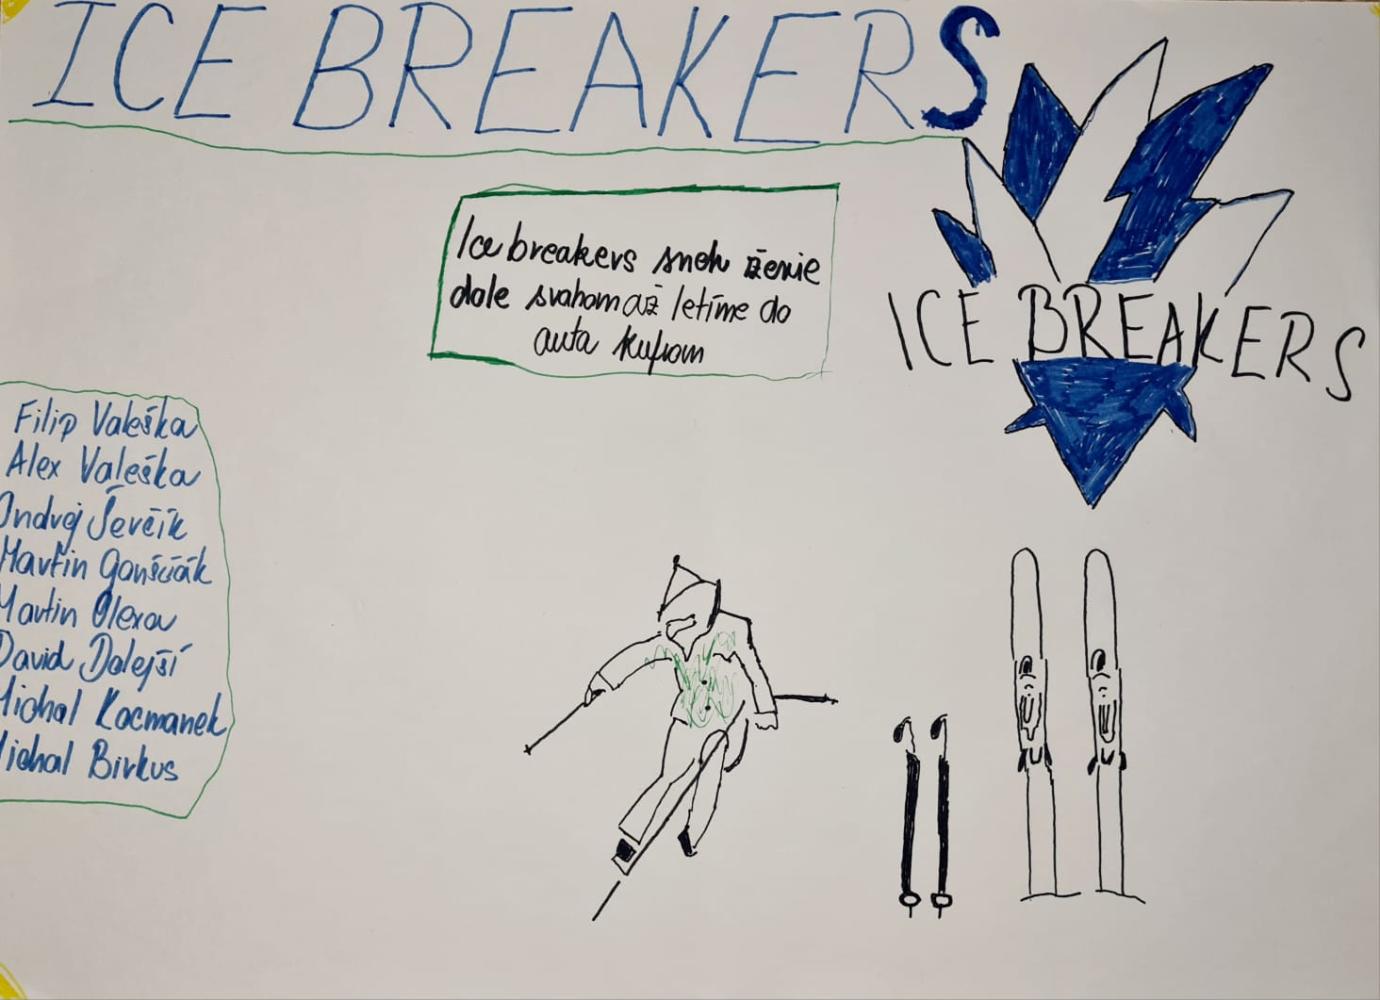 ICE BREAKERS
Ice breakers sneh ženie
dole svahom až letíme do
auta kufrom
ICE BREAKERS
Filip Valeška
Alex Valeška
Ondrej Ševčík
Martin Ganščák
Martin Olexa
David Dalejší
Michal Kocmanek
Michal Birkus